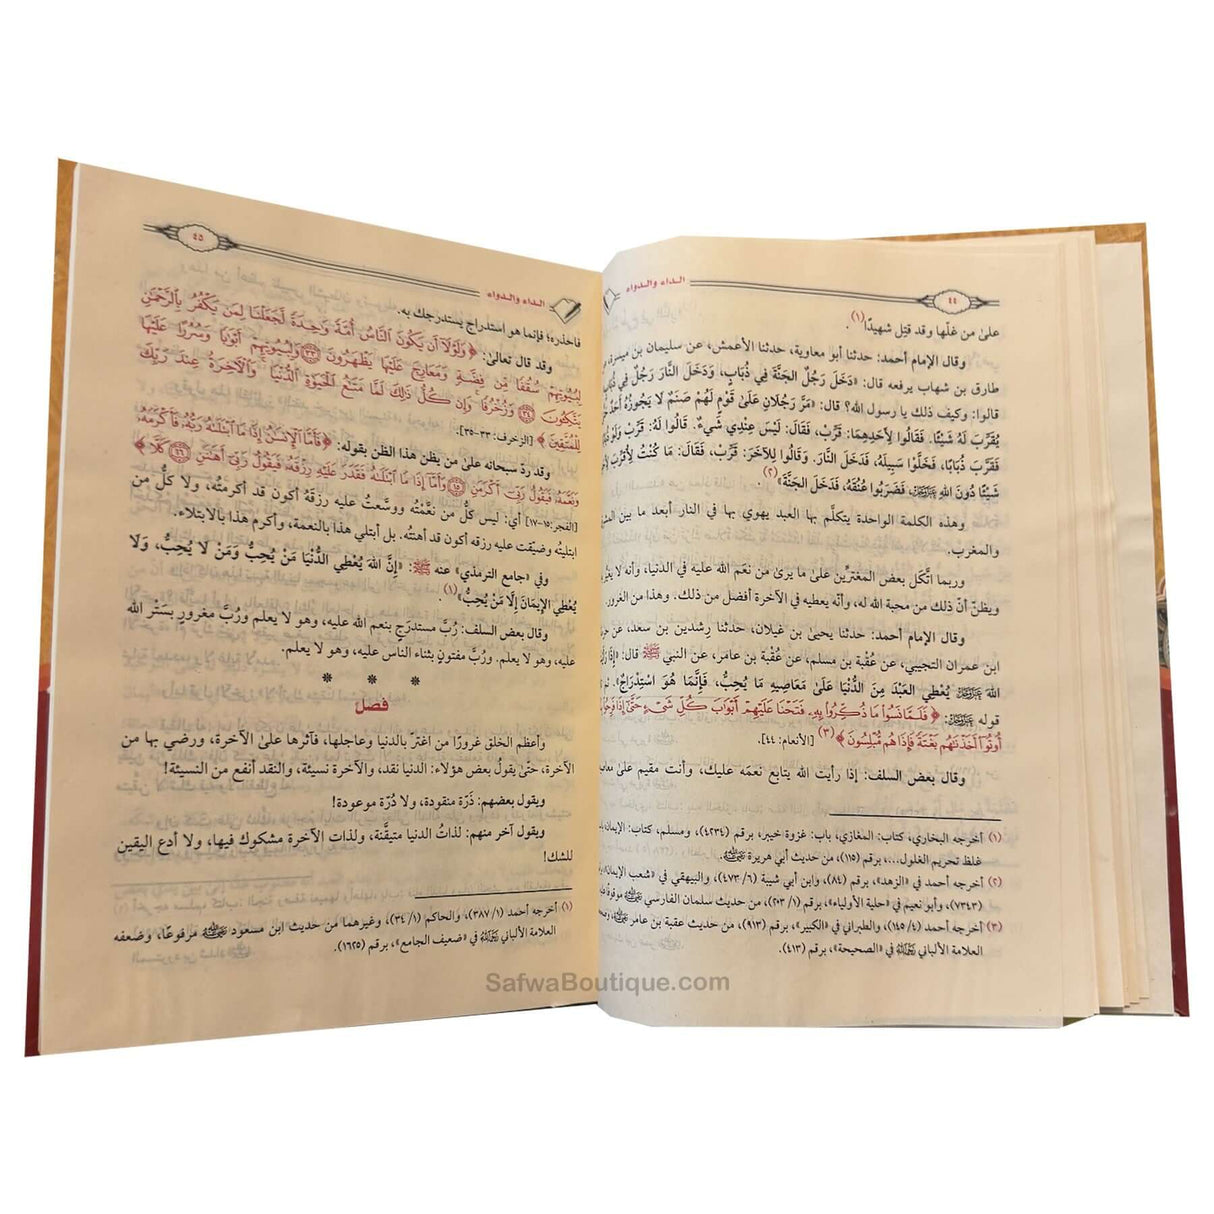 ٤٤
الداء والدواء
علىٰ من غلّها وقد قتِل شهيدًا(١).
وقال الإمام أحمد: حدثنا أبو معاوية، حدثنا الأعمش، عن سليمان بن ميسرة،
طارق بن شهاب يرفعه قال: «دَخَل رَجُلٌ الجَنَّةَ فِي ذُبَابٍ، وَدَخَلَ النَّارَ رَجُلٌ فِي ذُبَابٍ
قالوا: وكيف ذلك يا رسول الله؟ قال: «مَرَّ رَجُلَانِ عَلَىٰ قَوْمٍ لَهُمْ صَنَمٌ لَا يَجُوزُهُ أَحَدٌ
يُقَرِّبَ لَهُ شَيْئًا. فَقَالُوا لِأَحَدِهِمَا: قَرِّبْ، فَقَالَ: لَيْسَ عِنْدِي شَيْءٌ. قَالُوا لَهُ: قَرِّبْ وَلَوْ
فَقَرَّبَ ذُبَابًا، فَخَلَّوْا سَبِيلَهُ، فَدَخَلَ النَّارَ. وَقَالُوا لِلْآخَرِ: قَرِّبْ، فَقَالَ: مَا كُنْتُ لِأُقَرِّبَ
شَيْئًا دُونَ اللهِ عَزَّوَجَلَّ، فَضَرَبُوا عُنُقَهُ، فَدَخَلَ الجَنَّةَ»(٢)
وهذه الكلمة الواحدة يتكلَّم بها العبد يهوي بها في النار أبعد ما بين
والمغرب.
وربما اتَّكَل بعض المغترِّين علىٰ ما يرىٰ من نعَم الله عليه في الدنيا، وأنه لا
ويظنّ أنّ ذلك من محبة الله له، وأنّه يعطيه في الآخرة أفضل من ذلك. وهذا من الغرور.
وقال الإمام أحمد: حدثنا يحيىٰ بن غيلان، حدثنا رِشدين بن سعد، عن
ابن عمران التجيبي، عن عُقْبة بن مسلم، عن عُقْبة بن عامر، عن النبي ﷺ قال: «إِذَا
اللهَ عَزَّوَجَلَّ يُعْطِي العَبْدَ مِنَ الدُّنْيَا عَلَىٰ مَعَاصِيهِ مَا يُحِبُّ، فَإِنَّمَا هُوَ اسْتِدْرَاجٌ».
قوله عَزَّوَجَلَّ: ﴿فَلَمَّا نَسُوا۟ مَا ذُكِّرُوا۟ بِهِۦ فَتَحْنَا عَلَيْهِمْ أَبْوَٰبَ كُلِّ شَىْءٍ حَتَّىٰٓ إِذَا فَرِحُوا۟
أُوتُوٓا۟ أَخَذْنَٰهُم بَغْتَةً فَإِذَا هُم مُّبْلِسُونَ﴾(٣) [الأنعام: ٤٤].
وقال بعض السلف: إذا رأيت الله يتابع نعمَه عليك، وأنت مقيم علىٰ
(١) أخرجه البخاري، كتاب: المغازي، باب: غزوة خيبر، برقم (٤٢٣٤)، ومسلم، كتاب: الإيمان،
غلظ تحريم الغلول...، برقم (١١٥)، من حديث أبي هريرة رضي الله عنه.
(٢) أخرجه أحمد في «الزهد»، برقم (٨٤)، وابن أبي شيبة (٦/ ٤٧٣)، والبيهقي في «شعب الإيمان»،
(٧٣٤٣)، وأبو نعيم في «حلية الأولياء»، برقم (١/ ٢٠٣)، من حديث سلمان الفارسي رضي الله عنه موقوفًا
(٣) أخرجه أحمد (٤/ ١٤٥)، والطبراني في «الكبير»، برقم (٩١٣)، من حديث عقبة بن عامر رضي الله عنه،
العلامة الألباني رَحِمَهُ اللهُ في «الصحيحة»، برقم (٤١٣).
الداء والدواء
٤٥
فاحذره؛ فإنما هو استدراج يستدرجك به.
وقد قال تعالىٰ: ﴿وَلَوْلَآ أَن يَكُونَ ٱلنَّاسُ أُمَّةً وَٰحِدَةً لَّجَعَلْنَا لِمَن يَكْفُرُ بِٱلرَّحْمَٰنِ
لِبُيُوتِهِمْ سُقُفًا مِّن فِضَّةٍ وَمَعَارِجَ عَلَيْهَا يَظْهَرُونَ ۝٣٣ وَلِبُيُوتِهِمْ أَبْوَٰبًا وَسُرُرًا عَلَيْهَا
يَتَّكِـُٔونَ ۝٣٤ وَزُخْرُفًا ۚ وَإِن كُلُّ ذَٰلِكَ لَمَّا مَتَٰعُ ٱلْحَيَوٰةِ ٱلدُّنْيَا ۚ وَٱلْـَٔاخِرَةُ عِندَ رَبِّكَ
لِلْمُتَّقِينَ﴾ [الزخرف: ٣٣-٣٥].
وقد ردّ سبحانه علىٰ من يظن هذا الظن بقوله: ﴿فَأَمَّا ٱلْإِنسَٰنُ إِذَا مَا ٱبْتَلَىٰهُ رَبُّهُۥ فَأَكْرَمَهُۥ
وَنَعَّمَهُۥ فَيَقُولُ رَبِّىٓ أَكْرَمَنِ ۝١٥ وَأَمَّآ إِذَا مَا ٱبْتَلَىٰهُ فَقَدَرَ عَلَيْهِ رِزْقَهُۥ فَيَقُولُ رَبِّىٓ أَهَٰنَنِ ۝١٦ كَلَّا﴾
[الفجر: ١٥-١٧] أي: ليس كلُّ من نعَّمْتُه ووسَّعتُ عليه رزقَه أكون قد أكرمتُه، ولا كلُّ من
ابتليتُه وضيّقت عليه رزقه أكون قد أهنتُه. بل أبتلي هذا بالنعمة، وأكرم هذا بالابتلاء.
وفي «جامع الترمذي» عنه ﷺ: «إِنَّ اللهَ يُعْطِي الدُّنْيَا مَنْ يُحِبُّ وَمَنْ لَا يُحِبُّ، وَلَا
يُعْطِي الإِيمَانَ إِلَّا مَنْ يُحِبُّ»(١).
وقال بعض السلف: رُبَّ مستدرَجٍ بنعم الله عليه، وهو لا يعلم ورُبَّ مغرورٍ بسَتْر الله
عليه، وهو لا يعلم. ورُبَّ مفتونٍ بثناء الناس عليه، وهو لا يعلم.
* * *
فصل
وأعظم الخلق غرورًا من اغترّ بالدنيا وعاجلها، فآثرها علىٰ الآخرة، ورضي بها من
الآخرة، حتّىٰ يقولُ بعض هؤلاء: الدنيا نقد، والآخرة نسيئة، والنقد أنفع من النسيئة!
ويقول بعضهم: ذَرّة منقودة، ولا دُرّة موعودة!
ويقول آخر منهم: لذاتُ الدنيا متيقَّنة، ولذات الآخرة مشكوك فيها، ولا أدع اليقين
للشك!
(١) أخرجه أحمد (١/ ٣٨٧)، والحاكم (١/ ٣٤)، وغيرهما من حديث ابن مسعود رضي الله عنه مرفوعًا، وضعفه
العلامة الألباني رَحِمَهُ اللهُ في «ضعيف الجامع»، برقم (١٦٢٥).
SafwaBoutique.com